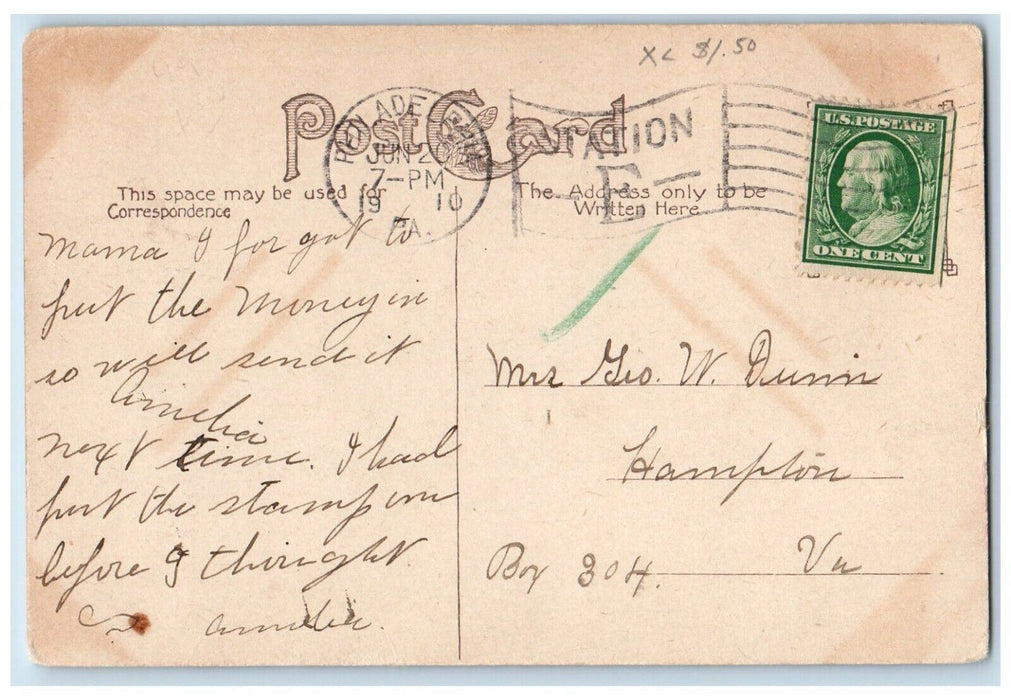 XL $1.50
Post Card
PHILADELPHIA
JUN 2
7-PM
1910
PA.
STATION
E
U.S. POSTAGE
ONE CENT
This space may be used for
Correspondence
The Address only to be
Written Here
Mama I for got to
put the money in
so will send it
Amelia
next time. I had
put the stamp on
before I thought
Amelia.
Mrs Geo. W. Dunn
Hampton
Box 304. Va